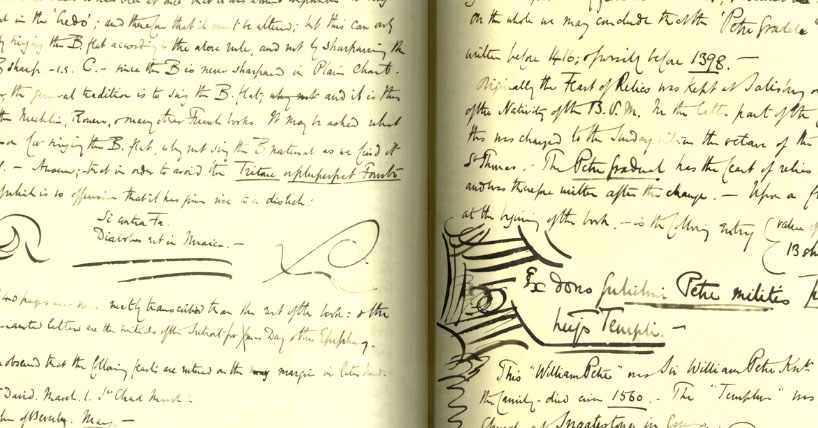 in the 'Credo'; and therefore that it must be altered; but this can only
by singing the B. flat according to the above rule, and not by sharpening the
B sharp - i.e. C. - since the B is never sharped in Plain chant.
the general tradition is to sing the B. flat; and it is thus
the Mechlin, Rouen, & many other French books. It may be asked what
for singing the B. flat, why not sing the B natural as we find it
- Answer; that in order to avoid the Tritone or pluperfect Fourth
which is so offensive that it has given rise to a distich:
Si contra Fa.
Diabolus est in Musica. -
two pages neatly transcribed than the rest of the book: & the
letters are the initials of the Introit for Xmas Day & the Epiphany.
observed that the following feasts are entered on the margin in later hand.
David. March 1. St Chad March 2.
of Beverley. May. -
On the whole we may conclude that the "Petre Gradual"
written before 1416; & possibly before 1398. -
Originally the Feast of Relics was kept at Salisbury
of the Nativity of the B. V. M. In the latter part of the
this was changed to the Sunday within the octave of the
St Thomas. - The Petre Gradual has the feast of relics
and was therefore written after the change. - Upon a
at the beginning of the book. - is the following entry (value of
13 sh
Ex dono Gulielmi Petre militis
hujs Templi. -
This "William Petre" was Sir William Petre Knt.
the family - died circa 1560. - The "Templum" was
Church at Ingatestone in Essex